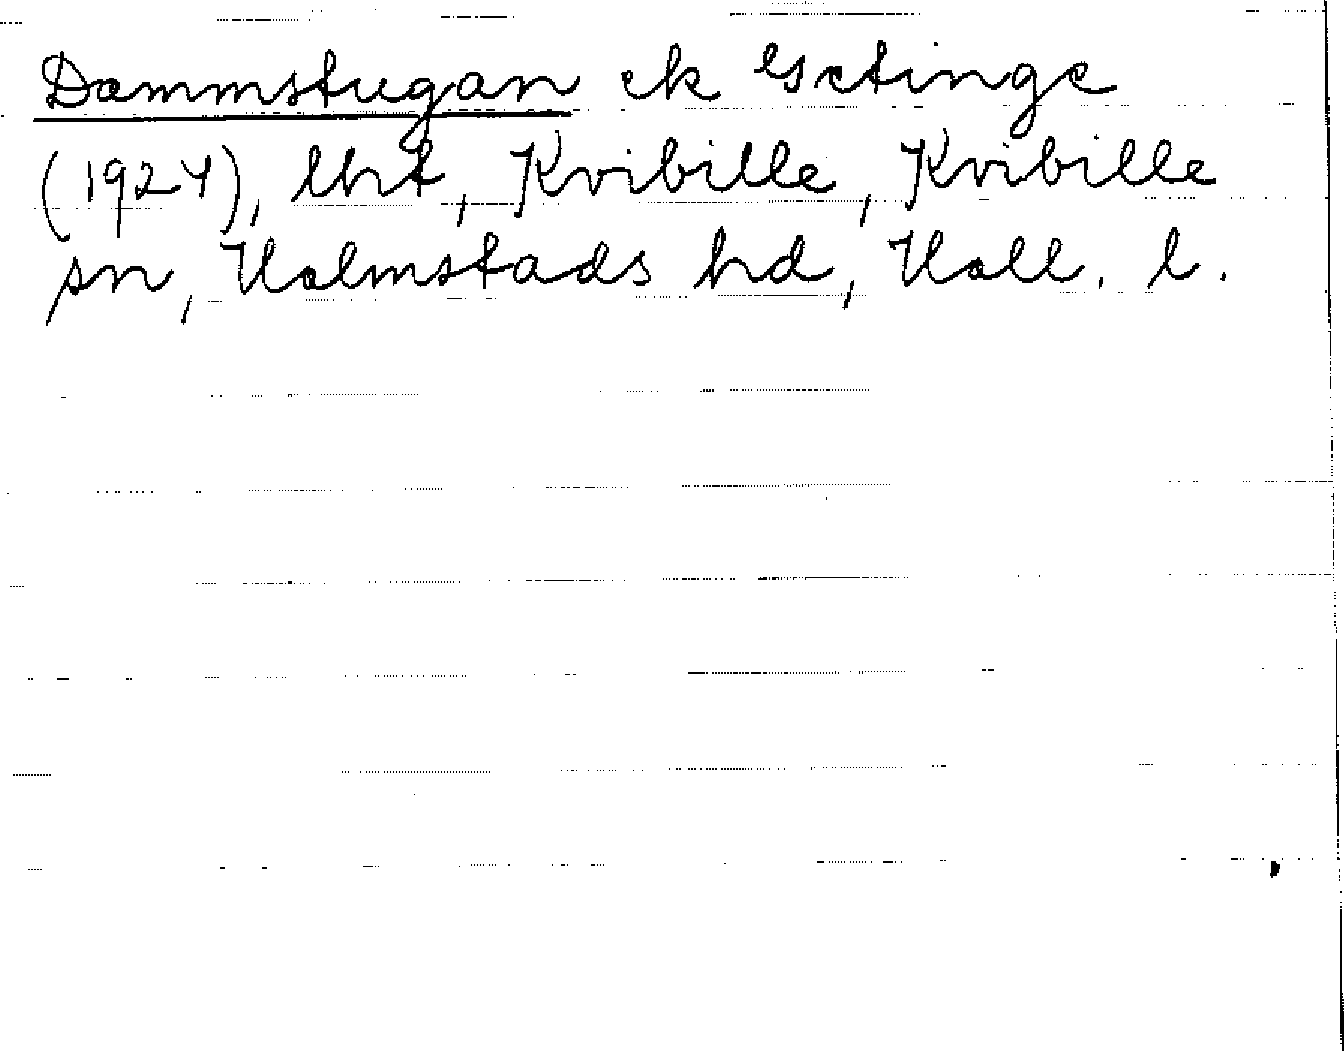 Dammstugan ek Getinge
(1924), lht, Kvibille, Kvibille
sn, Halmstads hd, Hall. l.